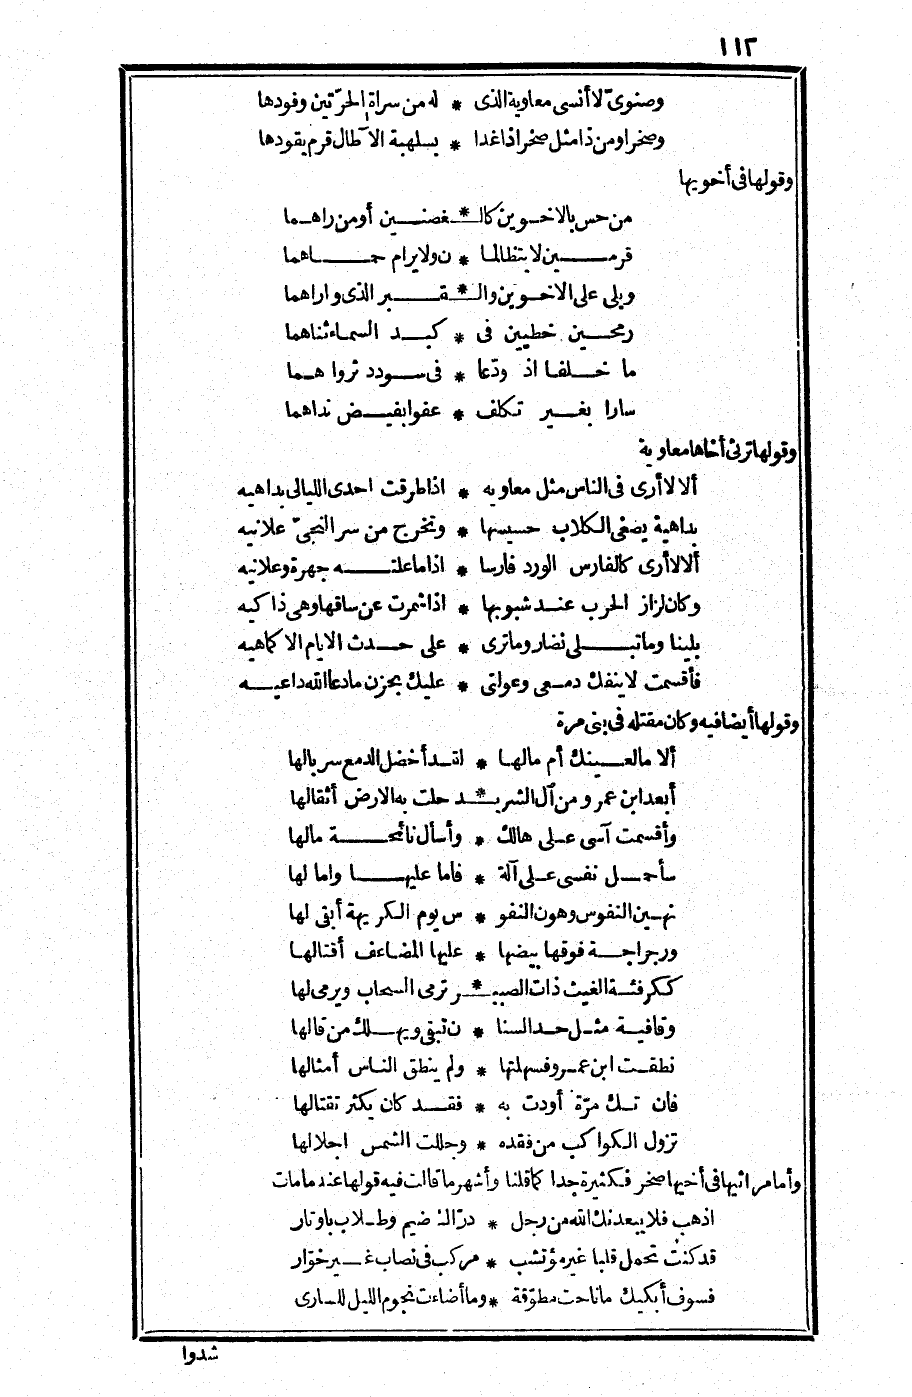 ١١٢
وصنوىّ لا أنسى معاوية الذى * له من سراة الحرّتين وفودها
وصخرا ومن ذا مثل صخر اذا غدا * بسلهبة الآطال قرم يقودها
وقولها فى أخويها
من حس بالاخوين كالـ * ـغصنين أو من راهما
قرمين لا يتظالمـا * ن ولا يرام حماهما
ويلى على الاخوين والـ * ـقبر الذى واراهما
رمحين خطيين فى * كبد السماء ثناهما
ما خلفا اذ ودّعا * فى سودد ثروا هما
سارا بغير تكلف * عفوا بفيض نداهما
وقولها ترثى أخاها معاوية
ألا لا أرى فى الناس مثل معاويه * اذا طرقت احدى الليالى بداهيه
بداهية يصغى الكلاب حسيسها * وتخرج من سر النجىّ علانيه
ألا لا أرى كالفارس الورد فارسا * اذا ما علته جهرة وعلانيه
وكان لزاز الحرب عند شبوبها * اذا شمرت عن ساقها وهى ذاكيه
بلينا وما تبلى نضار وما ترى * على حدث الايام الا كماهيه
فأقسمت لا ينفك دمعى وعولتى * عليك بحزن ما دعا الله داعيه
وقولها أيضا فيه وكان مقتله فى بنى مرة
ألا ما لعينك أم مالها * لقد أخضل الدمع سربالها
أبعد ابن عمرو من آل الشريـ * ـد حلت به الارض أثقالها
وأقسمت آسى على هالك * وأسأل نائحة مالها
سأحمل نفسى على آلة * فاما عليها واما لها
نهين النفوس وهون النفو * س يوم الكريهة أبقى لها
ورجراجة فوقها بيضها * عليها المضاعف أقتالها
ككرفئة الغيث ذات الصبيـ * ـر ترمى السحاب ويرمى لها
وقافية مثل حد السنا * ن تبقى ويهلك من قالها
نطقت ابن عمرو فسهلتها * ولم ينطق الناس أمثالها
فان تك مرّة أودت به * فقد كان يكثر تقتالها
تزول الكواكب من فقده * وجللت الشمس اجلالها
وأما مراثيها فى أخيها صخر فكثيرة جدا كما قلنا وأشهر ما قالت فيه قولها عند مامات
اذهب فلا يبعدنك الله من رجل * درّاك ضيم وطلاب باوتار
قد كنت تحمل قلبا غير مؤتشب * مركب فى نصاب غير خوّار
فسوف أبكيك ما ناحت مطوّقة * وما أضاءت نجوم الليل للسارى
شدوا